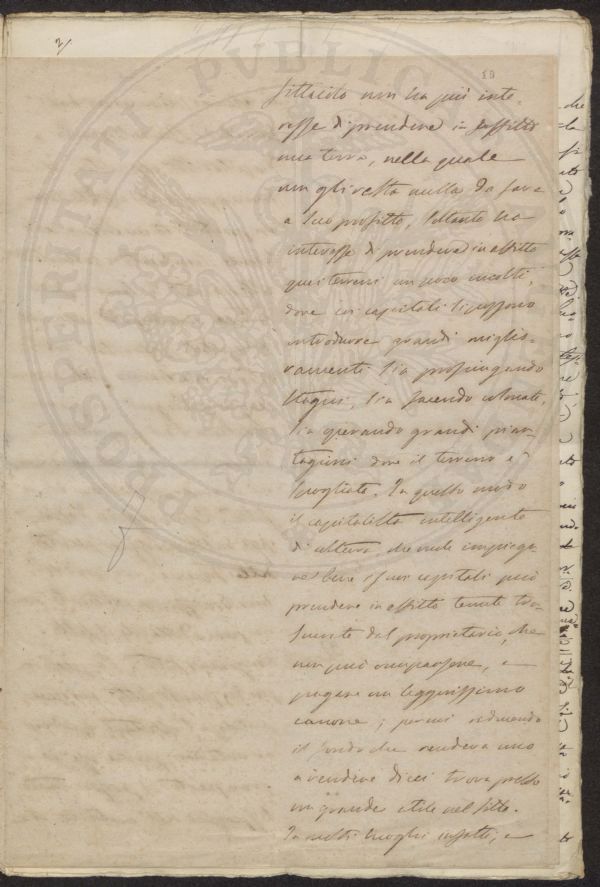 3/
10
fittaiolo non ha più inte-
resse di prendere in affitto
una terra, nella quale
non gli resta nulla da fare
a suo profitto, soltanto ha
interesse di prendere in affitto
quei terreni un poco incolti,
dove coi capitali si possono
introdurre grandi miglio-
ramenti sia prosciugando
stagni, sia facendo colmate,
sia operando grandi pian-
tagioni dove il terreno è
spogliato. In questo modo
il capitalista intelligente
di cultura, che vuole impiega-
re bene i suoi capitali può
prendere in affitto tenute tra-
scurate dal proprietario, che
non può occuparsene, e
pagare un leggerissimo
canone; per cui riducendo
il fondo che rendeva uno
a rendere dieci trova presto
un grande utile nel fitto.
In molti luoghi infatti, e
PROSPERITATI PUBLIC